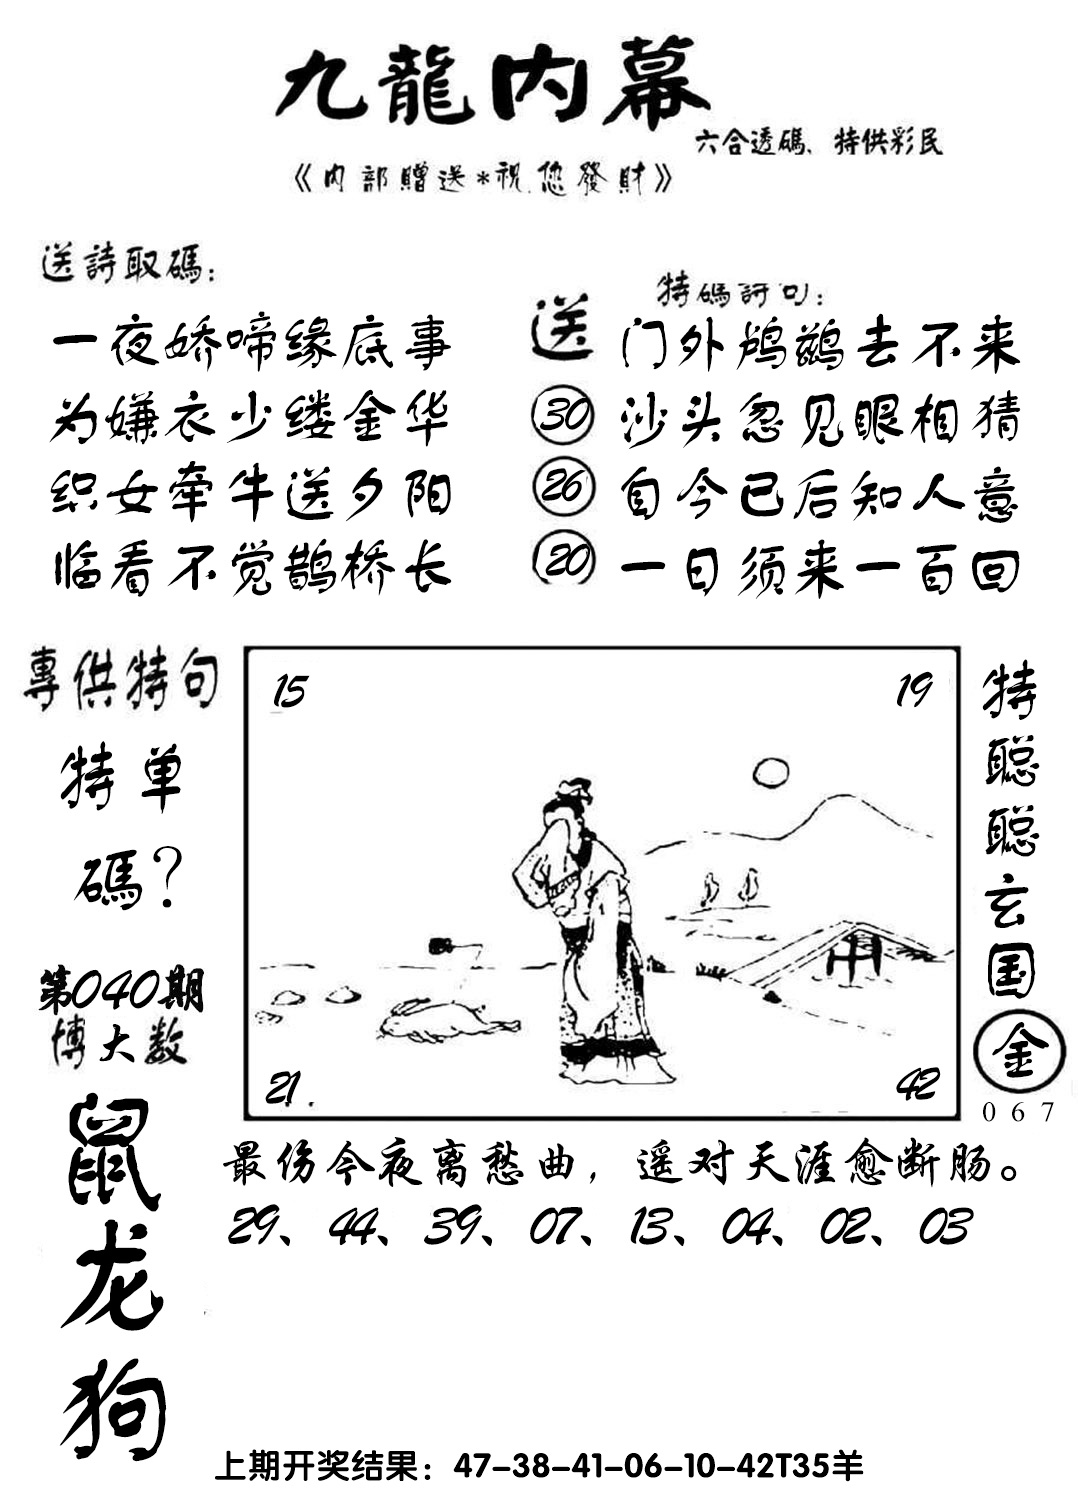 九龍内幕
六合透碼、特供彩民
《内部贈送*祝您發財》
送詩取碼：
一夜娇啼缘底事
为嫌衣少缕金华
织女牵牛送夕阳
临看不觉鹊桥长
特碼詩句：
送
30
26
20
门外鸬鹚去不来
沙头忽见眼相猜
自今已后知人意
一日须来一百回
專供特句
特单
碼？
第040期
博大数
鼠
龙
狗
15
19
21.
42
特
聪
聪
玄
国
金
067
最伤今夜离愁曲，遥对天涯愈断肠。
29、44、39、07、13、04、02、03
上期开奖结果：47-38-41-06-10-42T35羊